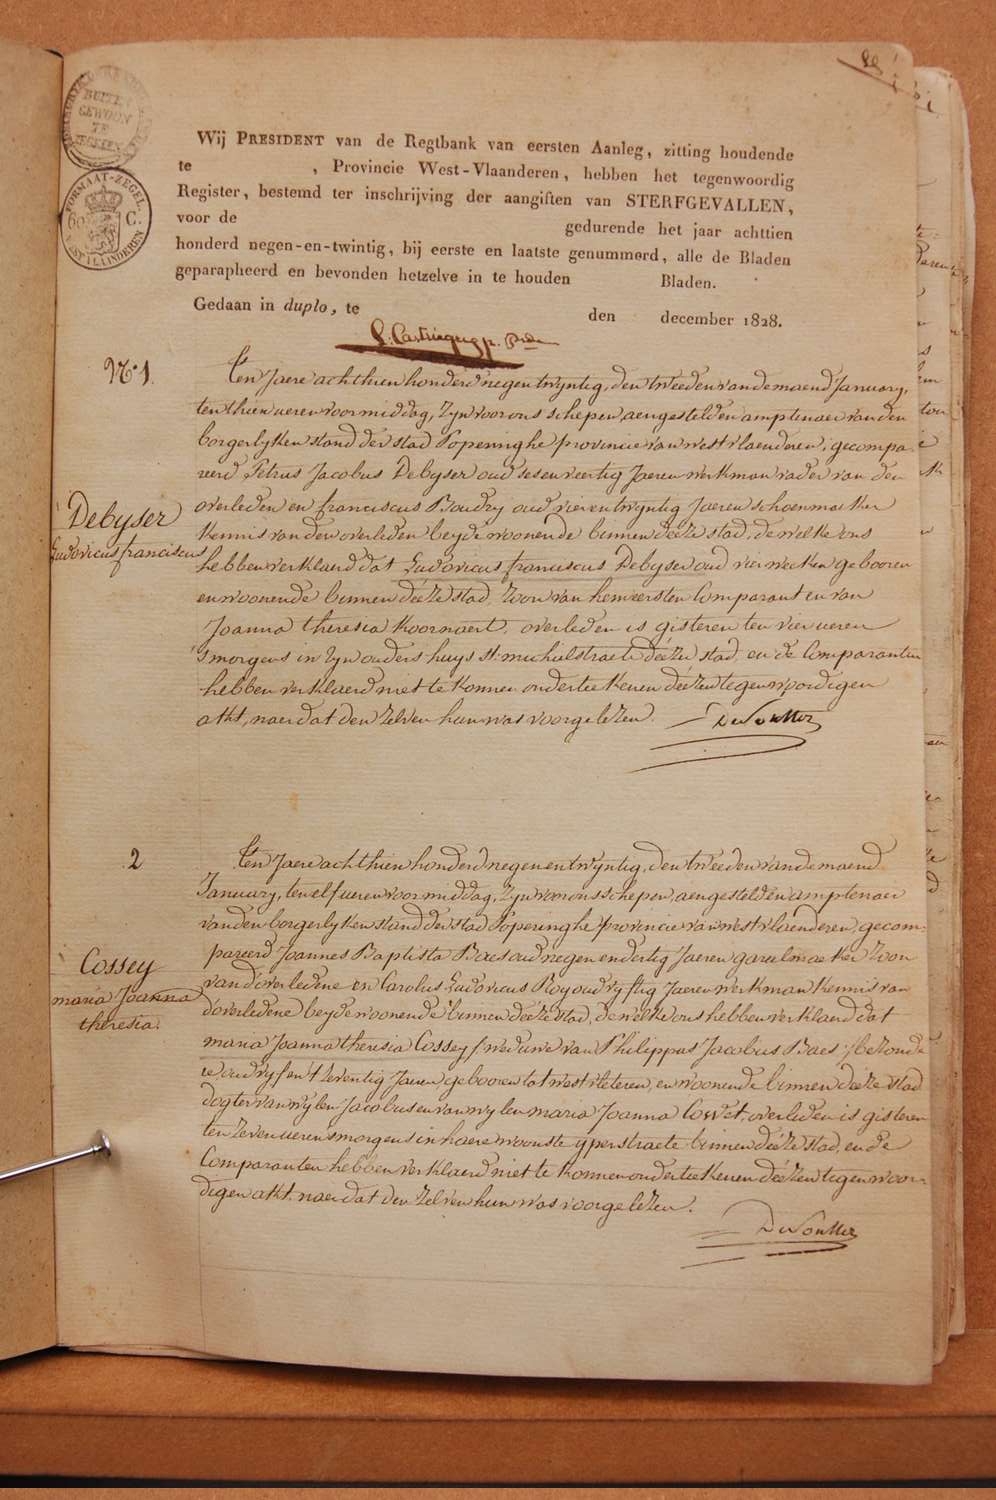 BUITEN
GEWOON
TE
FORMAAT-ZEGEL
60 C.
WESTVLAANDEREN
Wij PRESIDENT van de Regtbank van eersten Aanleg, zitting houdende
te , Provincie West-Vlaanderen, hebben het tegenwoordig
Register, bestemd ter inschrijving der aangiften van STERFGEVALLEN,
voor de gedurende het jaar achttien
honderd negen-en-twintig, bij eerste en laatste genummerd, alle de Bladen
geparapheerd en bevonden hetzelve in te houden Bladen.
Gedaan in duplo, te den december 1828.
N.º 1.
Debyser
Ludovicus franciscus
Ten Jaere achthien honderd negentwyntig, den tweeden van de maend January,
ten thien ueren voormiddag, zyn voor ons schepen, aengestelden amptenaer van den
borgerlyken stand der stad Poperinghe provincie van westvlaenderen, gecompa-
reerd Petrus Jacobus Debyser oud sesenveertig Jaeren werkman vader van den
overleden en franciscus Boudry oud vierentwyntig Jaeren schoenmaeker
kennis van den overleden beyde woonende binnen deéze stad, de welke ons
hebben verklaerd dat Ludovicus franciscus Debyser oud vier weeken gebooren
en woonende binnen deéze stad, zoon van hem eersten Comparant en van
Joanna theresia Koornaert, overleden is gisteren ten vier ueren
smorgens in zyn ouders huys st: michielstraete deéze stad, en de Comparanten
hebben verklaerd niet te konnen onderteekenen deézen tegenwoordigen
akt, naer dat den zelven hun was voorgelezen.
2
Cossey
maria Joanna
theresia.
Ten Jaere achthien honderd negenentwyntig, den tweeden van de maend
January, ten elf ueren voormiddag, zyn voor ons schepen, aengestelden amptenaer
van den borgerlyken stand der stad Poperinghe provincie van westvlaenderen, gecom-
pareerd Joannes Baptista Baes oud negenendertig Jaeren gareelmaeker zoon
van d'overledene en Carolus Ludovicus Roy oud vyftig Jaeren werkman kennis van
d'overledene beyde woonende binnen deéze stad, de welke ons hebben verklaerd dat
maria Joanna theresia Cossey /: weduwe van Philippus Jacobus Baes :/ bezonde-
re oud vyfentzeventig Jaeren gebooren tot westvleteren, en woonende binnen deéze stad
dogter van wylen Jacobus en van wylen maria Joanna Cowet, overleden is gisteren
ten zeven ueren smorgens in haere woonste yperstraete binnen deéze stad, en de
Comparanten hebben verklaerd niet te konnen onderteekenen deézen tegenwoor-
digen akt, naer dat den zelven hun was voorgelezen.